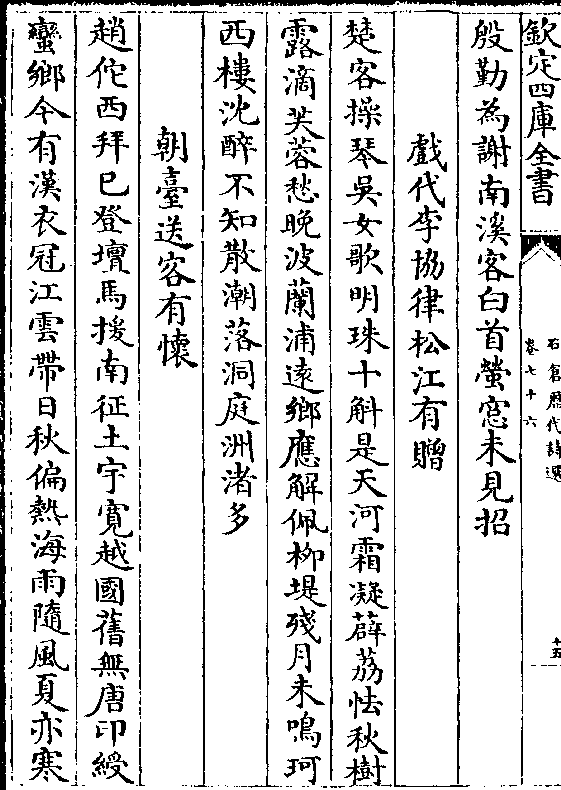 欽定四庫全書
石倉歷代詩選
卷七十六
十五
殷勤為謝南溪客白首螢窓未見招
戲代李協律松江有贈
楚客操琴吳女歌明珠十斛是天河霜凝薜荔怯秋樹
露滴芙蓉愁晚波蘭浦遠鄉應解佩柳堤殘月未鳴珂
西樓沈醉不知散潮落洞庭洲渚多
朝臺送客有懷
趙佗西拜已登壇馬援南征土宇寛越國舊無唐印綬
蠻鄉今有漢衣冠江雲帶日秋偏熱海雨隨風夏亦寒